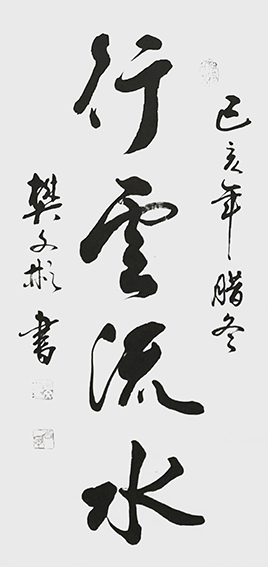 己亥年腊冬
行雲流水
樊文彬書